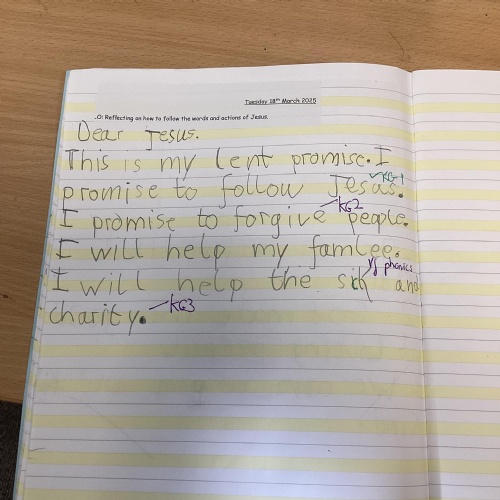 Tuesday 18th March 2025
.O: Reflecting on how to follow the words and actions of Jesus.
Dear Jesus.
This is my Lent promise. I
KG1
promise to follow Jesas.
I promise to forgive people.
KG2
I will help my famlee.
phonics
I will help the sick and
charity. KG3